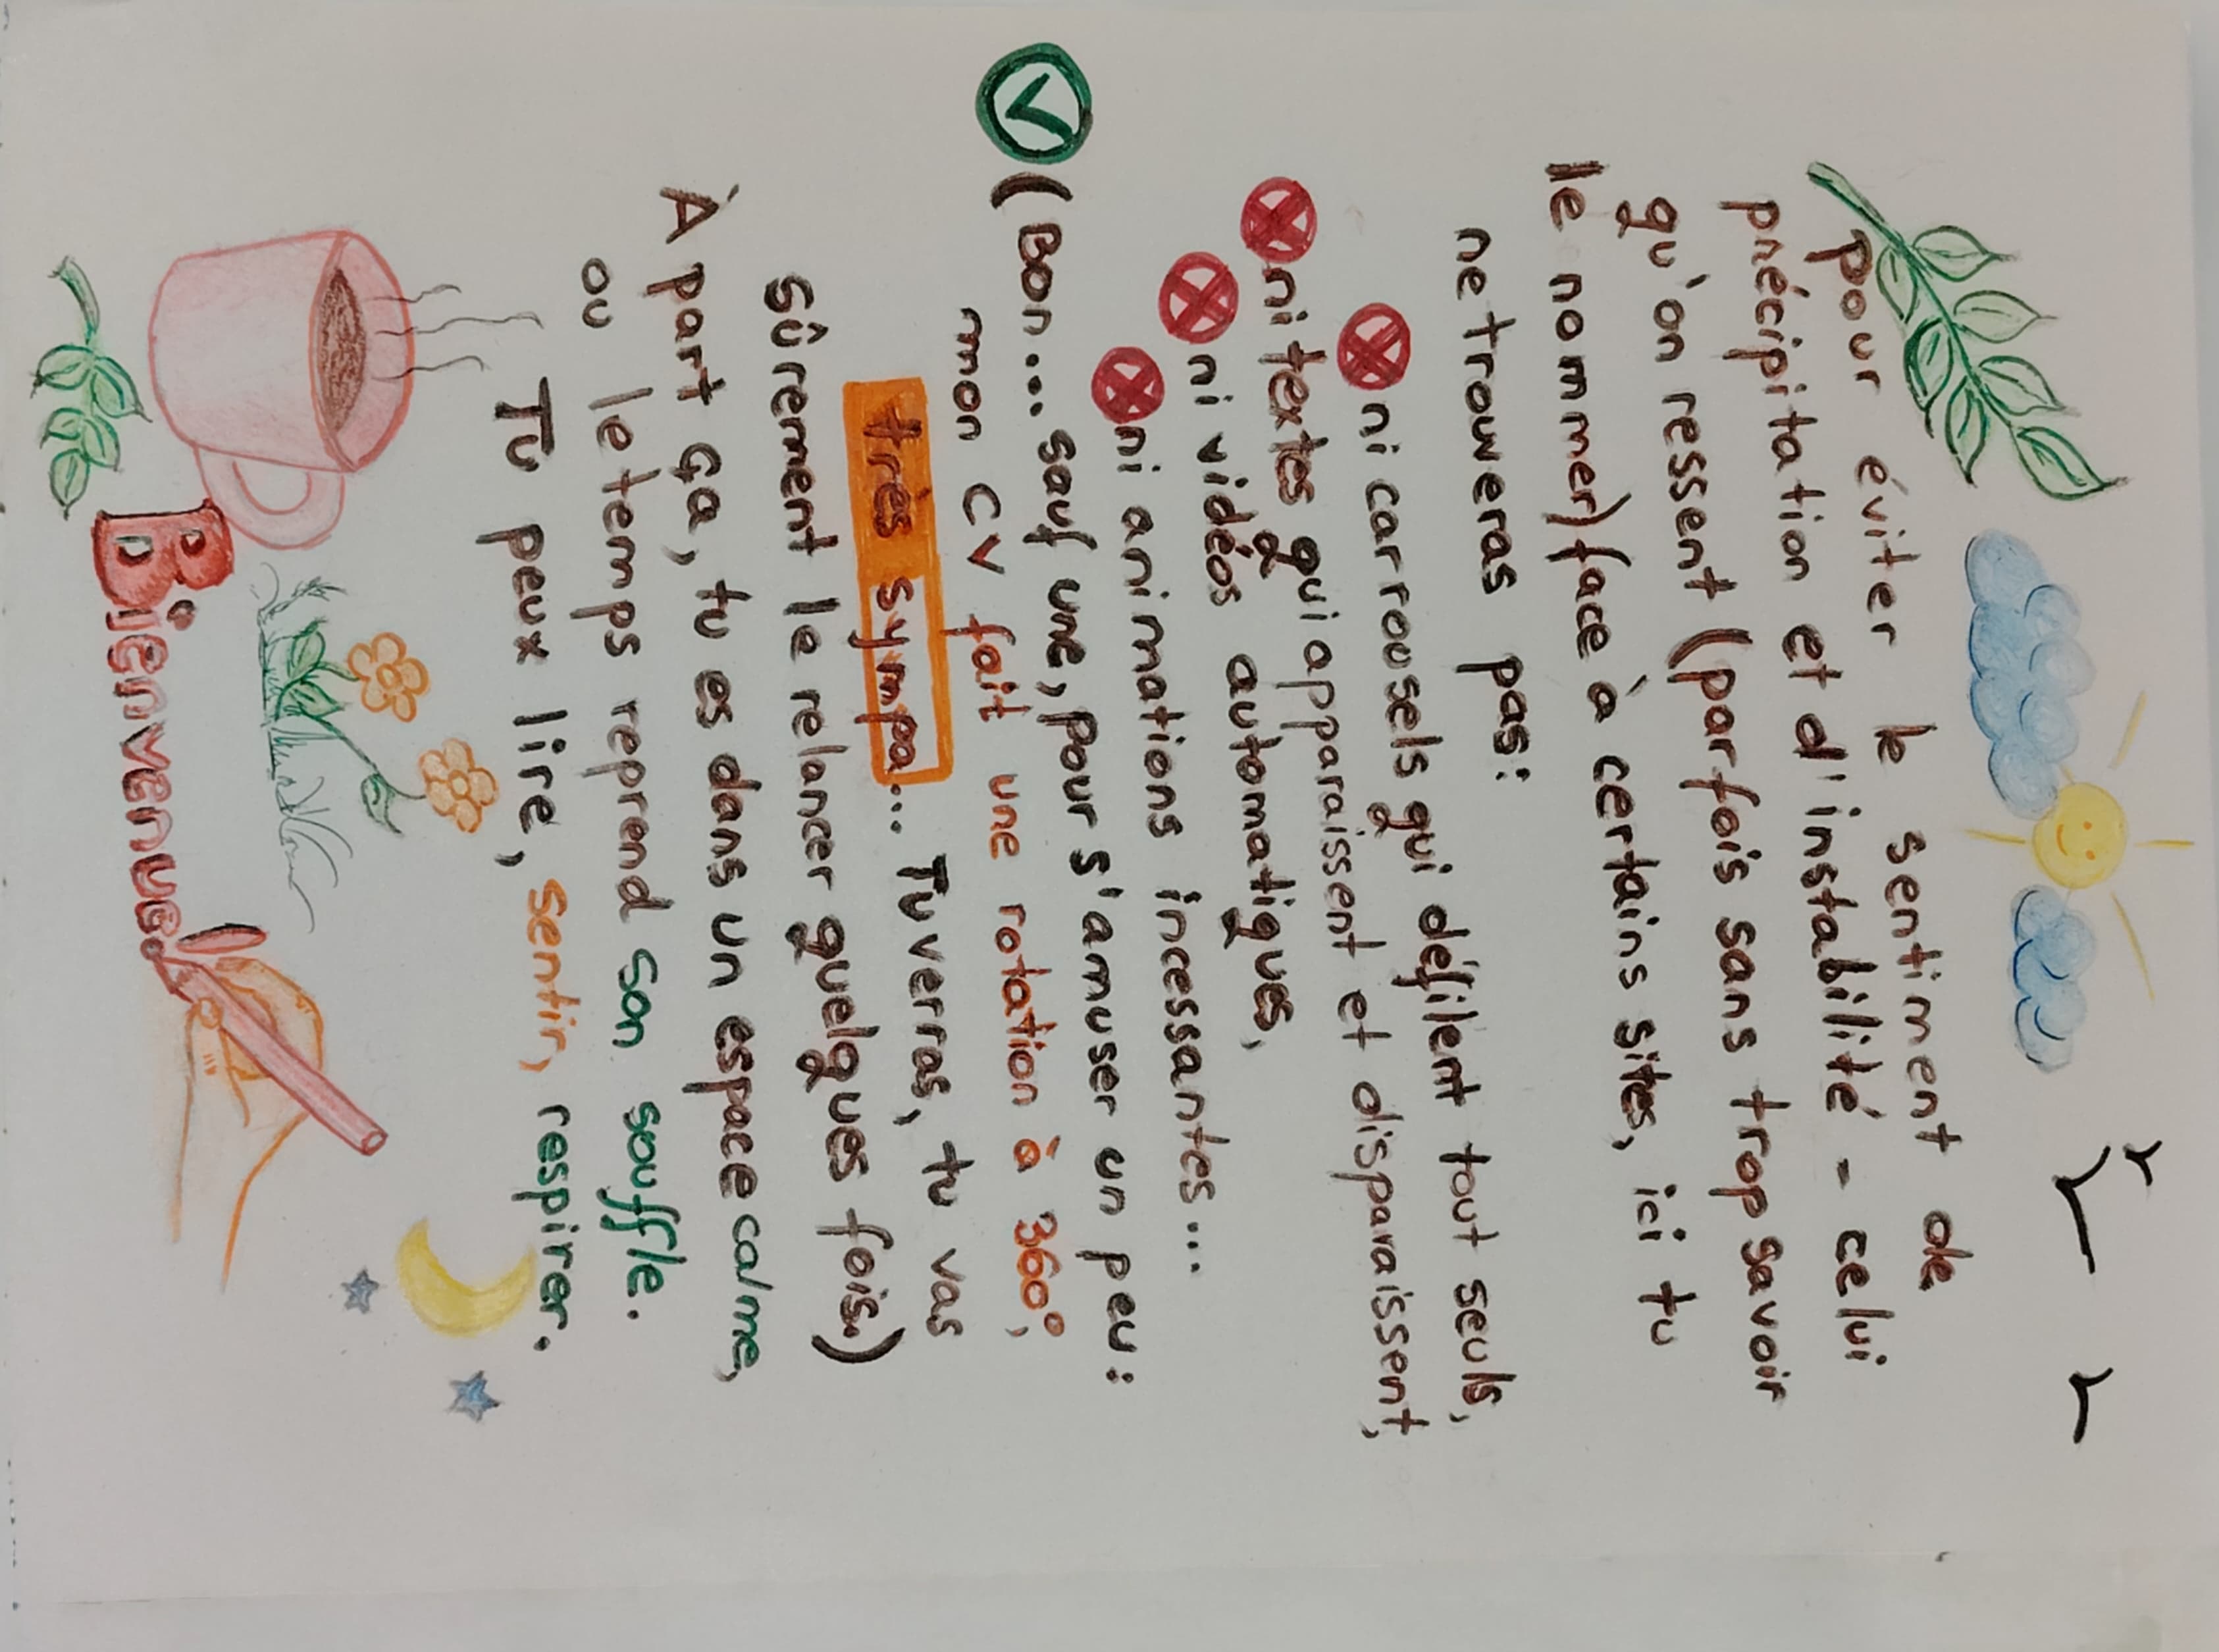 pour éviter le sentiment de
précipitation et d'instabilité - celui
qu'on ressent (parfois sans trop savoir
le nommer) face à certains sites, ici tu
ne trouveras pas:
ni carrousels qui défilent tout seuls,
ni textes qui apparaissent et disparaissent,
ni vidéos automatiques,
ni animations incessantes...
(Bon... sauf une, pour s'amuser un peu:
mon CV fait une rotation à 360°,
très sympa... Tu verras, tu vas
sûrement le relancer quelques fois.)
À part ça, tu es dans un espace calme,
ou le temps reprend son souffle.
Tu peux lire, sentir, respirer.
Bienvenue!